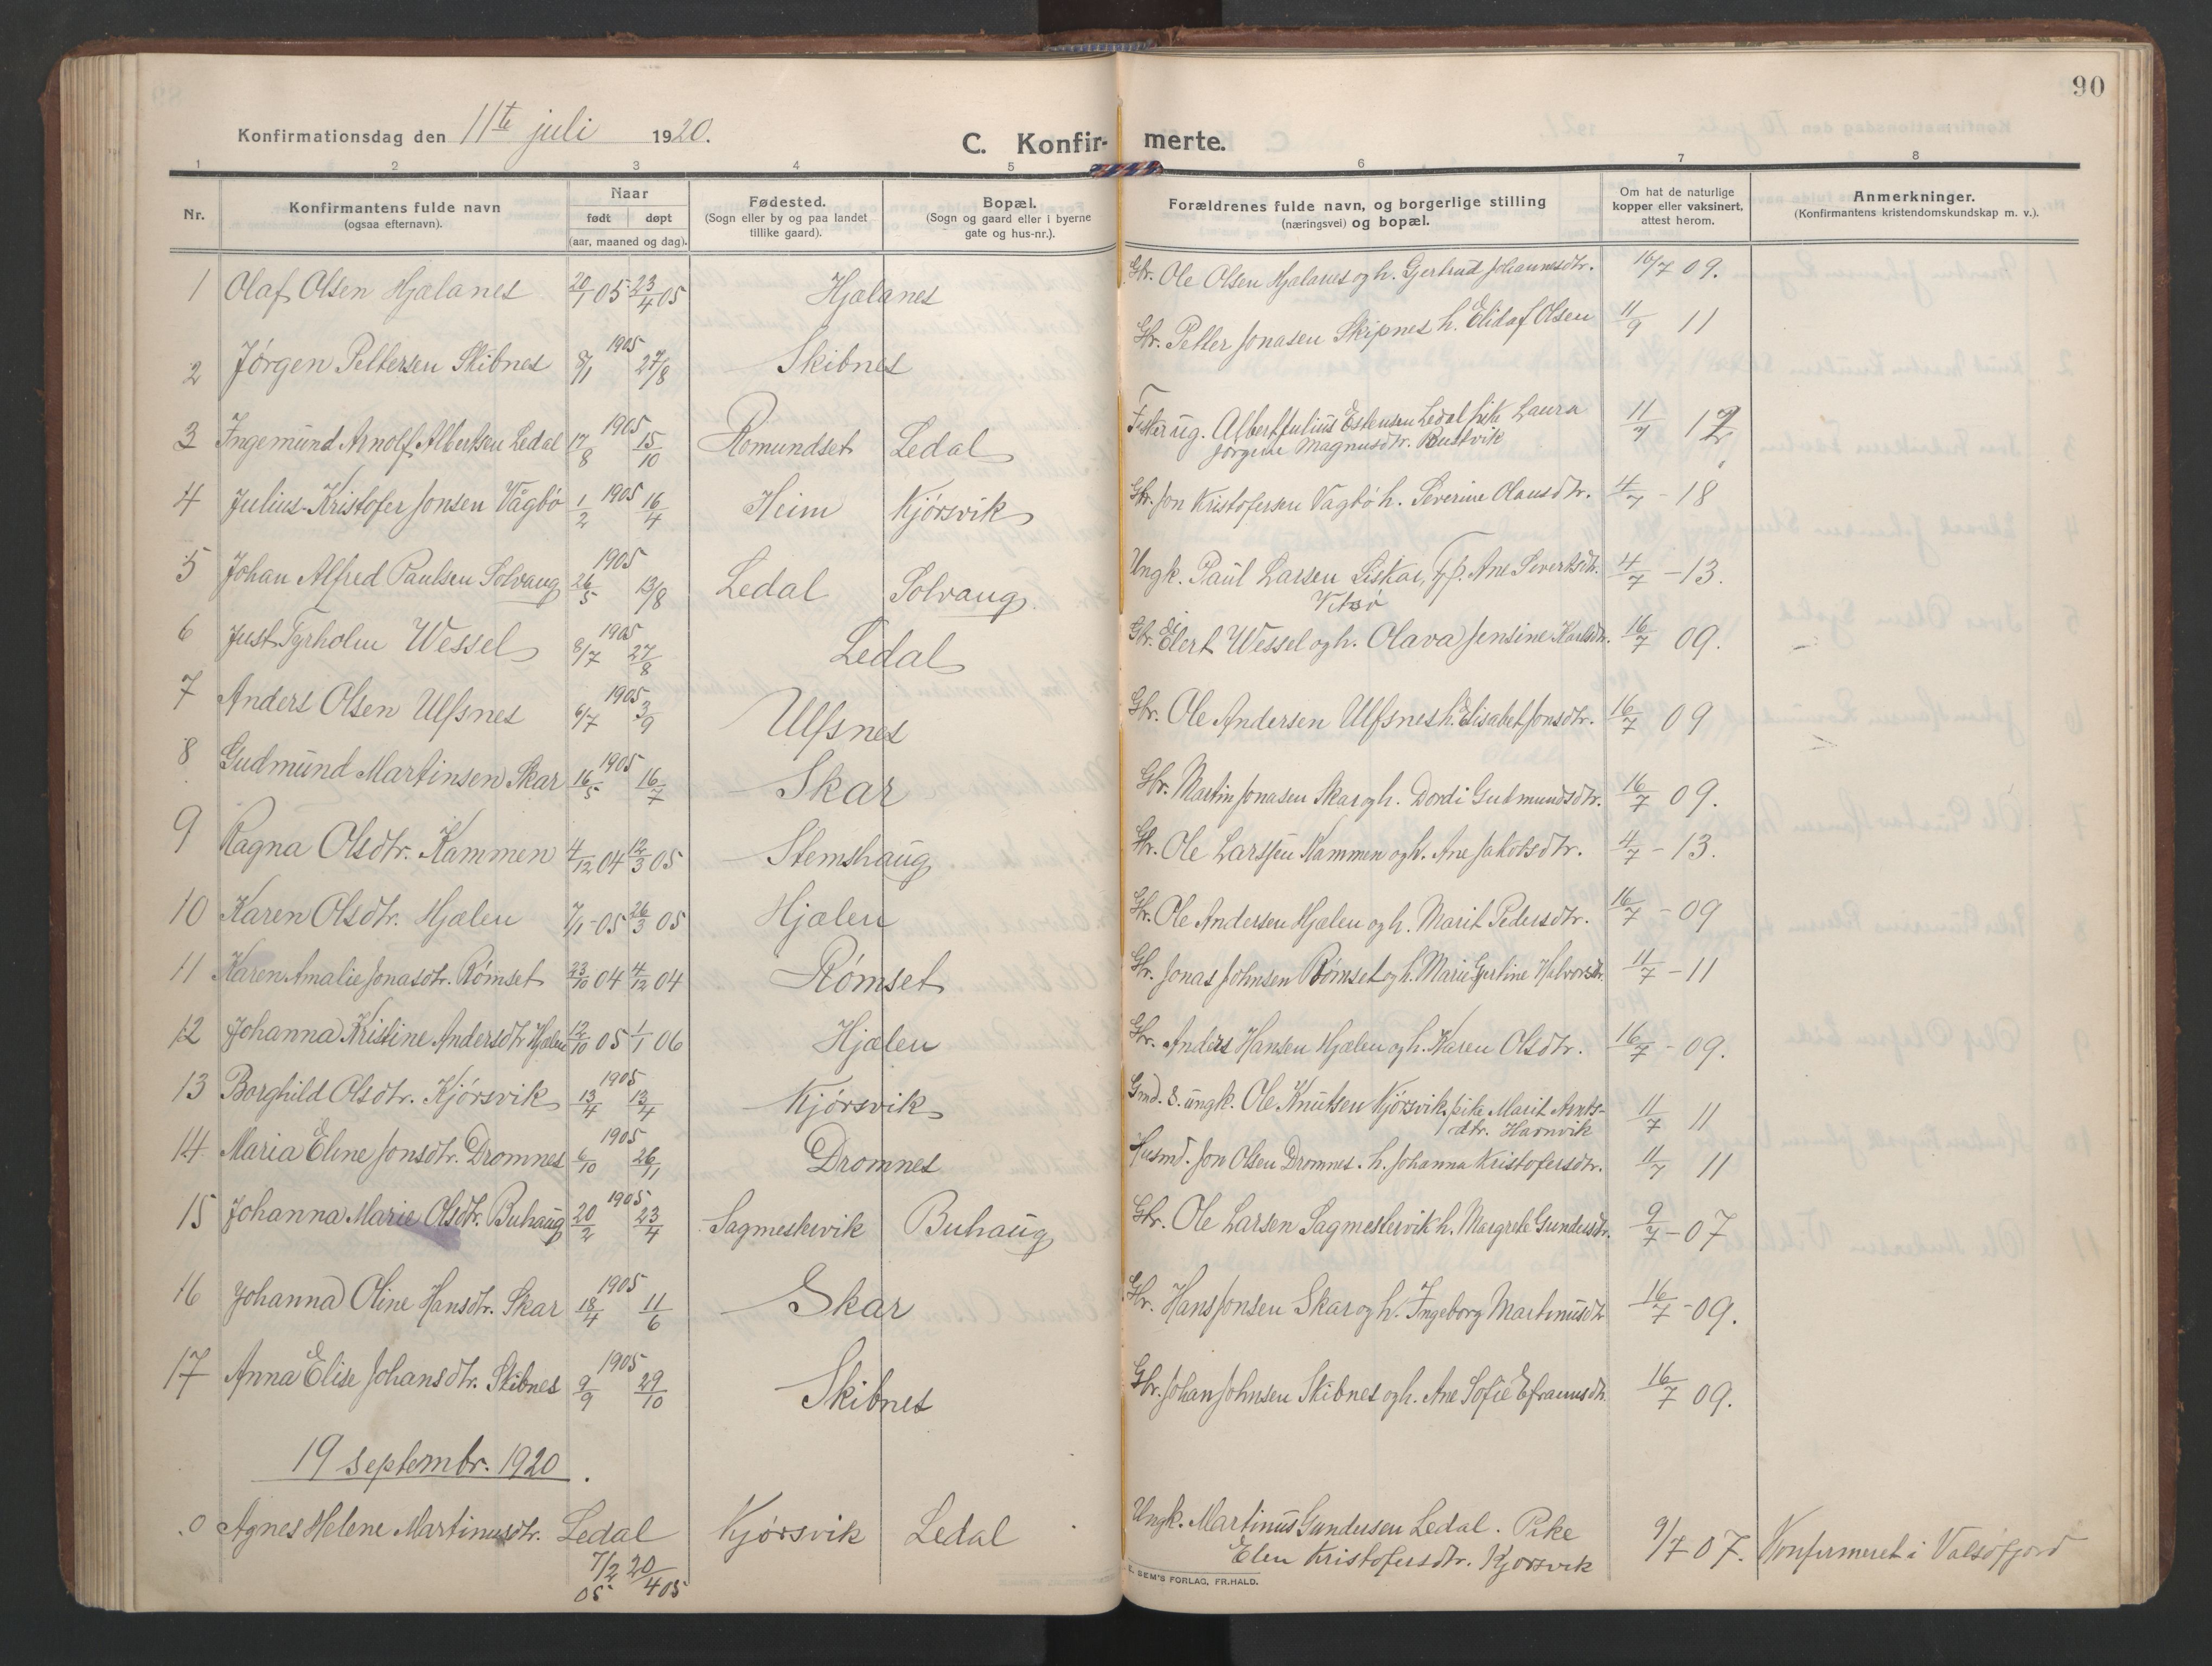 90
Konfirmationsdag den 11te juli 1920.
C. Konfir- merte.
1 2 3 4 5 6 7 8
Nr.
Konfirmantens fulde navn
(ogsaa efternavn).
Naar
født døpt
(aar, maaned og dag).
Fødested.
(Sogn eller by og paa landet
tillike gaard).
Bopæl.
(Sogn og gaard eller i byerne
gate og hus-nr.).
Forældrenes fulde navn, og borgerlige stilling
(næringsvei) og bopæl.
Om hat de naturlige
kopper eller vaksinert,
attest herom.
Anmerkninger.
(Konfirmantens kristendomskundskap m. v.).
1 Olaf Olsen Hjælanes 20/1 05 23/4 05 Hjælanes Gbr. Ole Olsen Hjælanes og h. Gjertrud Johannesdtr. 16/7 09.
2 Jørgen Pettersen Skibnes 1905 8/11 27/8 Skibnes Gbr. Petter Jonasen Skipnes h. Elidaf Olsen 11/9 11
3 Ingemund Arnolf Albertsen Ledal 1905 17/8 15/10 Romundset Ledal Fisker ug. Albert Julius Estensen Ledal pike Laura
Jørgine Magnusdtr. Rustvik 11/7 12
4 Julius Kristofer Jonsen Vågbø 1905 1/2 16/4 Heim Kjørsvik Gbr. Jon Kristofersen Vagbø h. Severine Olausdtr. 4/7 - 18
5 Johan Alfred Paulsen Solvang 1905 26/5 13/8 Ledal Solvaug. Ungk. Paul Larsen Liskar, Tp. Ane Sivertsdtr.
Vitsø 4/7 - 13.
6 Just Tyrholm Wessel 1905 8/7 27/8 Ledal Gbr. Eilert Wessel og h. Olava Jensine Karlsdtr. 16/7 09.
7 Anders Olsen Ulfsnes 1905 6/7 3/9 Ulfsnes Gbr. Ole Andersen Ulfsnes h. Elisabet Jonsdtr. 16/7 09
8 Gudmund Martinsen Skar 1905 16/5 16/7 Skar Gbr. Martin Jonasen Skar og h. Dordi Gudmundsdtr. 16/7 09.
9 Ragna Olsdtr. Kammen 4/12 04 12/3 05 Stemshaug Gbr. Ole Larssen Kammen og h. Ane Jakobsdtr. 4/7 - 13.
10 Karen Olsdtr. Hjælen 7/1 - 05 26/3 05 Hjælen Gbr. Ole Andersen Hjælen og h. Marit Pedersdtr. 16/7 - 09
11 Karen Amalie Jonasdtr. Rømset 23/10 04 4/12 04 Rømset Gbr. Jonas Johnsen Rømset og h. Marie Gjertine Halvorsdtr. 11/7 - 11
12 Johanna Kristine Andersdtr Hjælen 12/10 05 1/1 06 Hjælen Gbr. Anders Hansen Hjælen og h. Karen Olsdtr. 16/7 - 09.
13 Borghild Olsdtr. Kjørsvik 1905 13/4 13/4 Kjørsvik Gmd. S. ungk. Ole Knutsen Kjørsvik, pike Marit Arnts-
dtr. Hamvik 11/7 11
14 Maria Eline Jonsdtr. Dromnes 1905 6/10 26/11 Dromnes Husmd. Jon Olsen Dromnes. h. Johanna Kristofersdtr. 11/7 11
15 Johanna Marie Olsdtr. Buhaug 1905 20/2 23/4 Sagmestervik Buhaug Gbr. Ole Larsen Sagmestervik h. Margrete Gundersdtr. 9/7 - 07
16 Johanna Oline Hansdtr. Skar 1905 18/4 11/6 Skar Gbr. Hans Jonsen Skar og h. Ingeborg Martinusdtr 16/7 - 09.
17 Anna Elise Johansdtr. Skibnes 1905 9/9 29/10 Skibnes Gbr. Johan Johnsen Skibnes og h. Ane Sofie Eframsdtr. 16/7 09.
19 septembr. 1920.
0 Agnes Helene Martinusdtr. Ledal 7/2 05 20/4 05 Kjørsvik Ledal Ungk. Martinus Gundersen Ledal. Pike
Elen Kristofersdtr. Kjørsvik 9/7 07. Konfirmeret i Valsøfjord
E. SEM'S FORLAG, FR.HALD.